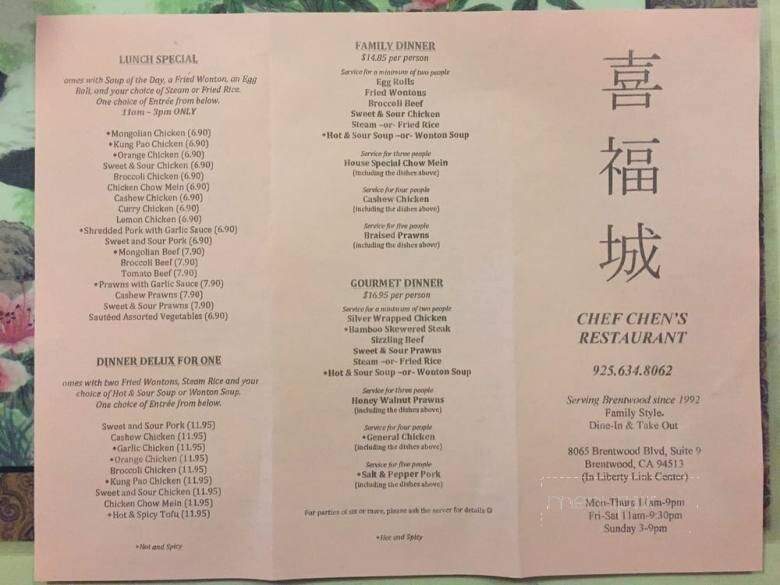 LUNCH SPECIAL
omes with Soup of the Day, a Fried Wonton, an Egg
Roll, and your choice of Steam or Fried Rice.
One choice of Entrée from below.
11am – 3pm ONLY
•Mongolian Chicken (6.90)
•Kung Pao Chicken (6.90)
•Orange Chicken (6.90)
Sweet & Sour Chicken (6.90)
Broccoli Chicken (6.90)
Chicken Chow Mein (6.90)
Cashew Chicken (6.90)
Curry Chicken (6.90)
Lemon Chicken (6.90)
•Shredded Pork with Garlic Sauce (6.90)
Sweet and Sour Pork (6.90)
•Mongolian Beef (7.90)
Broccoli Beef (7.90)
Tomato Beef (7.90)
•Prawns with Garlic Sauce (7.90)
Cashew Prawns (7.90)
Sweet & Sour Prawns (7.90)
Sautéed Assorted Vegetables (6.90)
DINNER DELUX FOR ONE
omes with two Fried Wontons, Steam Rice and your
choice of Hot & Sour Soup or Wonton Soup.
One choice of Entrée from below.
Sweet and Sour Pork (11.95)
Cashew Chicken (11.95)
•Garlic Chicken (11.95)
•Orange Chicken (11.95)
Broccoli Chicken (11.95)
•Kung Pao Chicken (11.95)
Sweet and Sour Chicken (11.95)
Chicken Chow Mein (11.95)
•Hot & Spicy Tofu (11.95)
•Hot and Spicy
FAMILY DINNER
$14.85 per person
Service for a minimum of two people
Egg Rolls
Fried Wontons
Broccoli Beef
Sweet & Sour Chicken
Steam –or– Fried Rice
•Hot & Sour Soup –or– Wonton Soup
Service for three people
House Special Chow Mein
(including the dishes above)
Service for four people
Cashew Chicken
(including the dishes above)
Service for five people
Braised Prawns
(including the dishes above)
GOURMET DINNER
$16.95 per person
Service for a minimum of two people
Silver Wrapped Chicken
•Bamboo Skewered Steak
Sizzling Beef
Sweet & Sour Prawns
Steam –or– Fried Rice
•Hot & Sour Soup –or– Wonton Soup
Service for three people
Honey Walnut Prawns
(including the dishes above)
Service for four people
•General Chicken
(including the dishes above)
Service for five people
•Salt & Pepper Pork
(including the dishes above)
For parties of six or more, please ask the server for details ☺
•Hot and Spicy
喜
福
城
CHEF CHEN'S
RESTAURANT
925.634.8062
Serving Brentwood since 1992
Family Style.
Dine-In & Take Out
8065 Brentwood Blvd, Suite 9
Brentwood, CA 94513
(In Liberty Link Center)
Mon-Thurs 11am-9pm
Fri-Sat 11am-9:30pm
Sunday 3-9pm